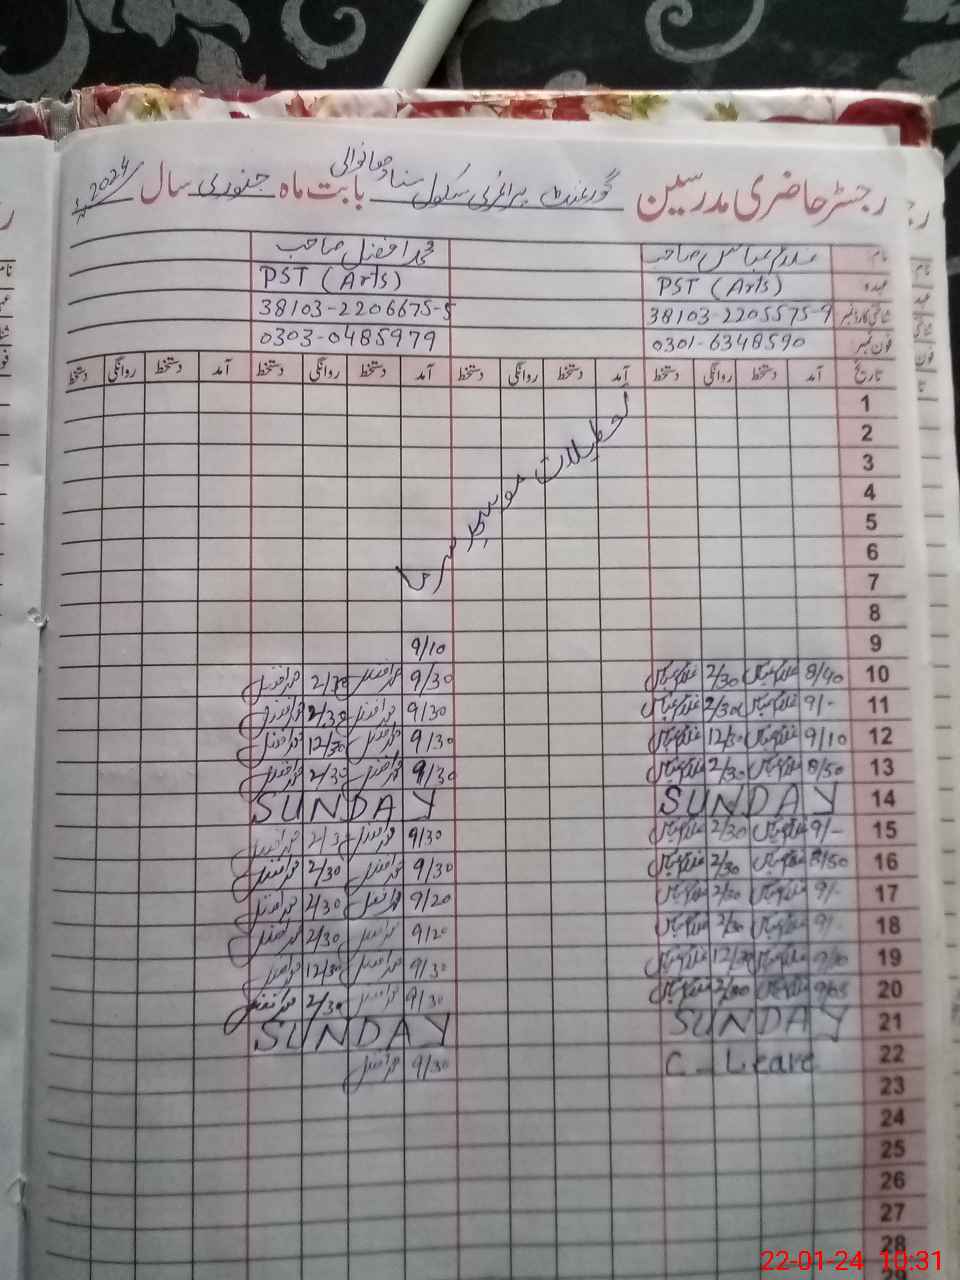 رجسٹر حاضری مدرسین گورنمنٹ پرائمری سکول بابت ماہ جنوری سال 2024
نام غلام عباس صاحب محمد افضل صاحب
عہدہ PST (Arts) PST (Arts)
شناختی کارڈ نمبر 38103-2205575-9 38103-2206675-5
فون نمبر 0301-6348590 0303-0485979
تاریخ آمد دستخط روانگی دستخط آمد دستخط روانگی دستخط آمد دستخط روانگی دستخط آمد دستخط روانگی دستخط
1
2
3
4
5
6
7
تعطیلات موسم سرما
8
9 9/10
10 8/40 غلام عباس 2/30 غلام عباس 9/30 محمد افضل 2/30 محمد افضل
11 9/- غلام عباس 2/30 غلام عباس 9/30 محمد افضل 2/30 محمد افضل
12 9/10 غلام عباس 12/30 غلام عباس 9/30 محمد افضل 12/30 محمد افضل
13 8/50 غلام عباس 2/30 غلام عباس 9/30 محمد افضل 2/30 محمد افضل
14 SUNDAY SUNDAY
15 9/- غلام عباس 2/30 غلام عباس 9/30 محمد افضل 2/30 محمد افضل
16 8/50 غلام عباس 2/30 غلام عباس 9/30 محمد افضل 2/30 محمد افضل
17 9/- غلام عباس 2/30 غلام عباس 9/20 محمد افضل 2/30 محمد افضل
18 9/- غلام عباس 2/30 غلام عباس 9/20 محمد افضل 2/30 محمد افضل
19 غلام عباس 12/30 غلام عباس 9/30 محمد افضل 12/30 محمد افضل
20 9/05 غلام عباس غلام عباس 9/30 محمد افضل 2/30 محمد افضل
21 SUNDAY SUNDAY
22 C - Leave 9/30 محمد افضل
23
24
25
26
27
28
22-01-24 10:31